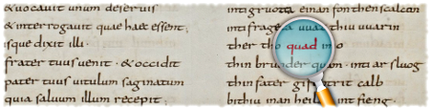 & uocauit unum deseruis
& interrogauit quae haec essent;
isque dixit illi·
frater tuus uenit· & occidit
pater tuus uitulum saginatum
quia saluum illum recepit;
inti gruozta einan fon then scalcan
inti frageta uuaz thiu uuarin
ther tho quad imo
thin bruoder quam· inti arsluog
thin fater calb
bithiu int fieng·